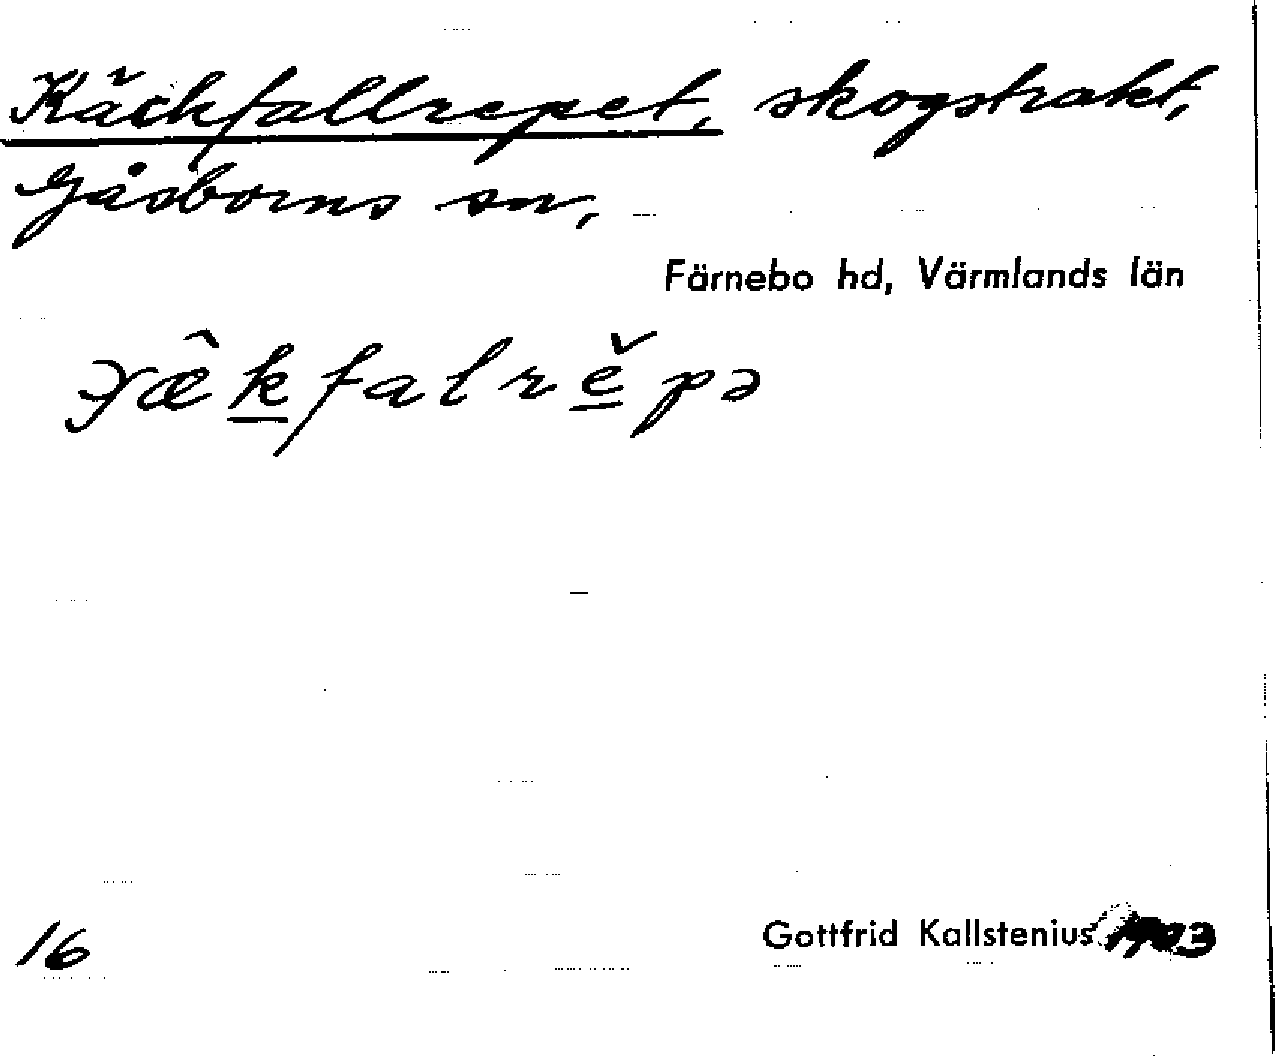 Käckfallrepet, skogstrakt,
Gåsborns sn,
Färnebo hd, Värmlands län
ɟæ̂k̲falrě̲pə
16
Gottfrid Kallstenius 1903